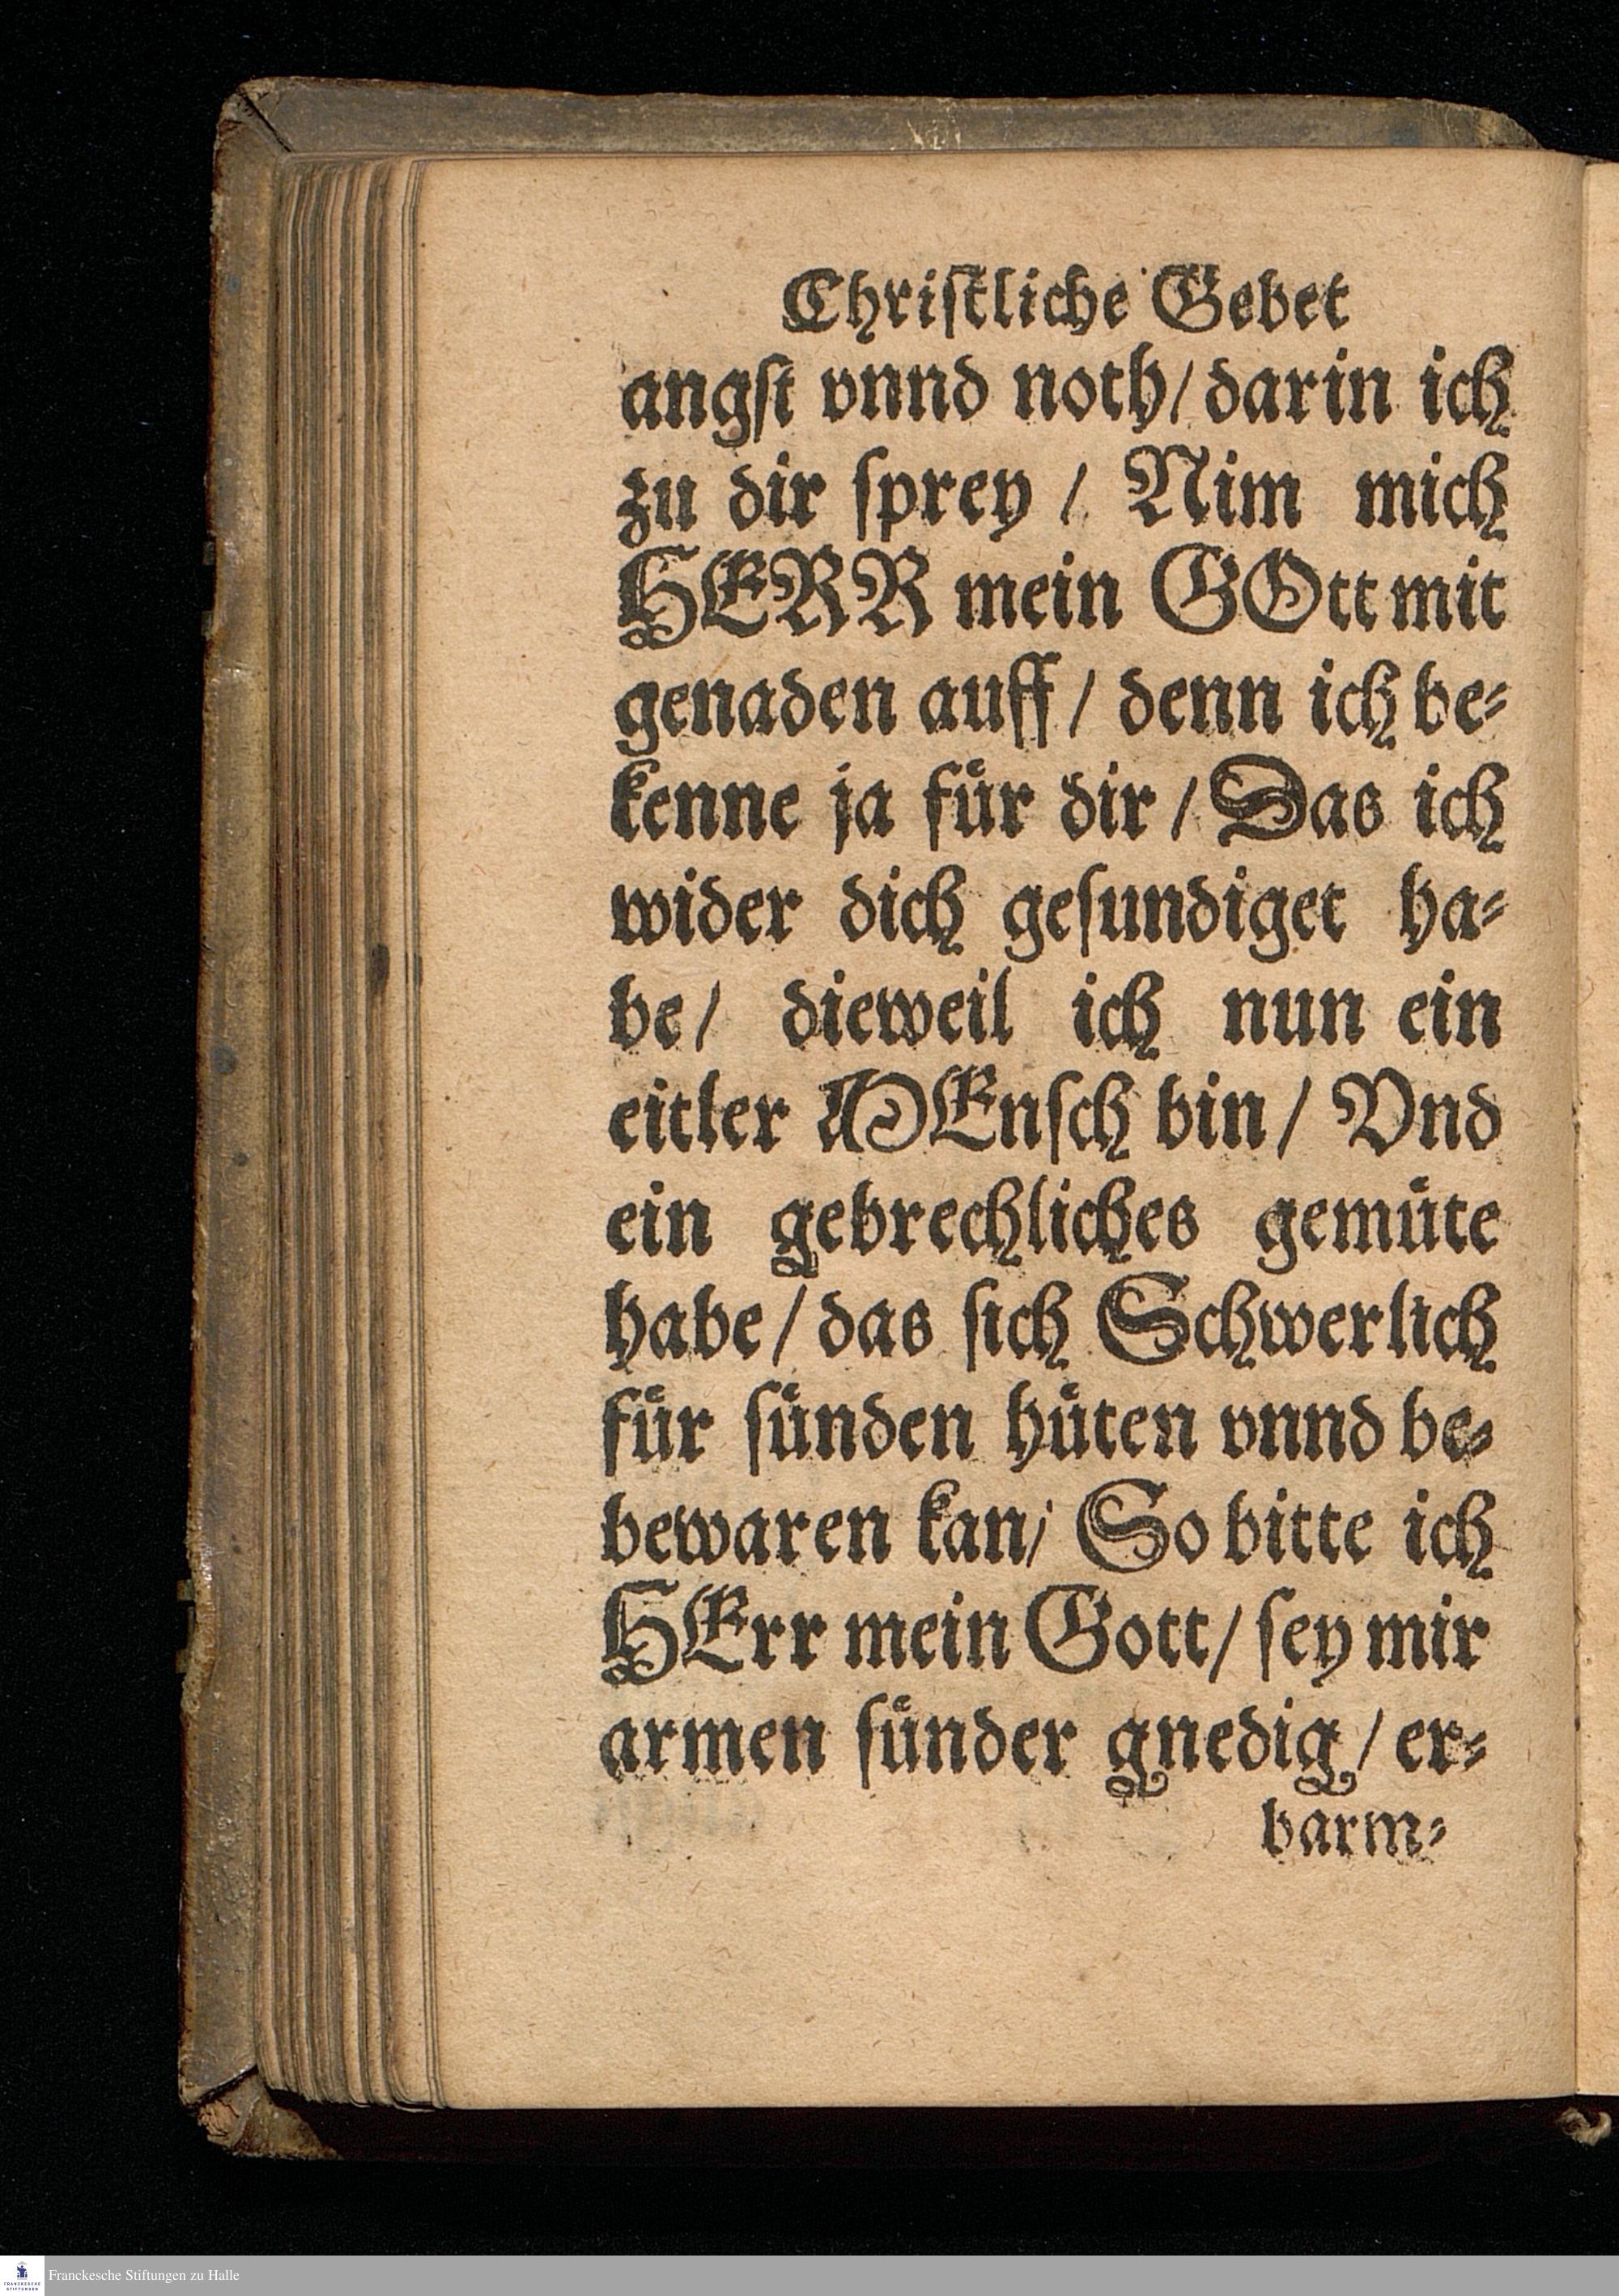 Chriſtliche Gebet
angſt vnnd noth / darin ich
zu dir ſprey / Nim mich
HERR mein GOtt mit
genaden auff / denn ich be⸗
kenne ja fuͤr dir / Das ich
wider dich geſundiget ha⸗
be / dieweil ich nun ein
eitler MEnſch bin / Vnd
ein gebrechliches gemuͤte
habe / das ſich Schwerlich
fuͤr ſuͤnden huͤten vnnd be⸗
bewaren kan / So bitte ich
HErr mein Gott / ſey mir
armen ſuͤnder gnedig / er⸗
barm⸗
FRANCKESCHE
STIFTUNGEN
Franckesche Stiftungen zu Halle